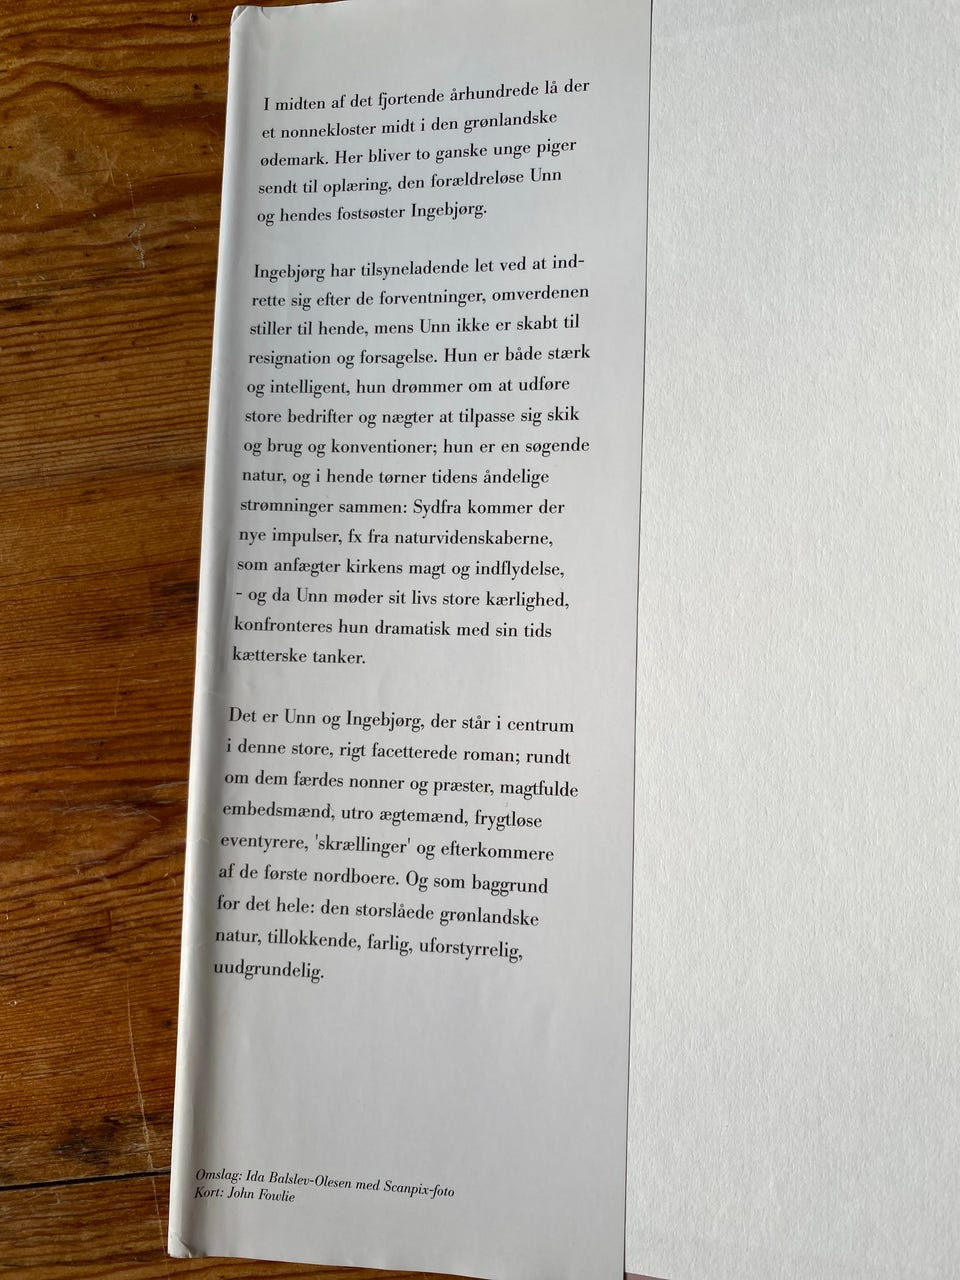 I midten af det fjortende århundrede lå der
et nonnekloster midt i den grønlandske
ødemark. Her bliver to ganske unge piger
sendt til oplæring, den forældreløse Unn
og hendes fostsøster Ingebjørg.
Ingebjørg har tilsyneladende let ved at ind-
rette sig efter de forventninger, omverdenen
stiller til hende, mens Unn ikke er skabt til
resignation og forsagelse. Hun er både stærk
og intelligent, hun drømmer om at udføre
store bedrifter og nægter at tilpasse sig skik
og brug og konventioner; hun er en søgende
natur, og i hende tørner tidens åndelige
strømninger sammen: Sydfra kommer der
nye impulser, fx fra naturvidenskaberne,
som anfægter kirkens magt og indflydelse,
- og da Unn møder sit livs store kærlighed,
konfronteres hun dramatisk med sin tids
kætterske tanker.
Det er Unn og Ingebjørg, der står i centrum
i denne store, rigt facetterede roman; rundt
om dem færdes nonner og præster, magtfulde
embedsmænd, utro ægtemænd, frygtløse
eventyrere, 'skrællinger' og efterkommere
af de første nordboere. Og som baggrund
for det hele: den storslåede grønlandske
natur, tillokkende, farlig, uforstyrrelig,
uudgrundelig.
Omslag: Ida Balslev-Olesen med Scanpix-foto
Kort: John Fowlie